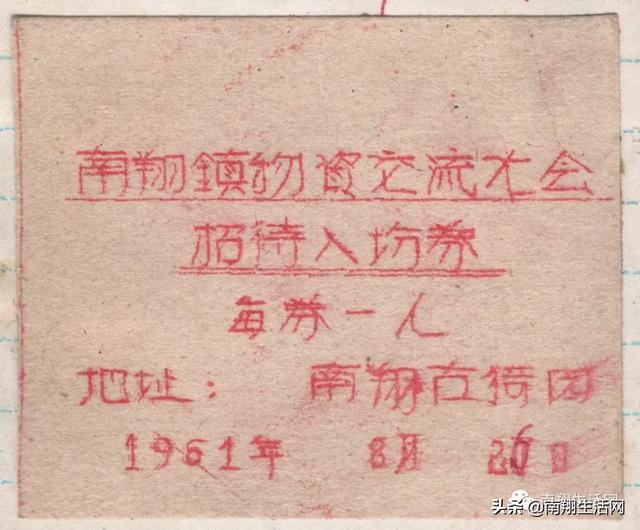 南翔鎮物資交流大会
招待入場券
每券一人
地址： 南翔古猗园
1961年 8月 26日
南翔生活网
头条 @南翔生活网